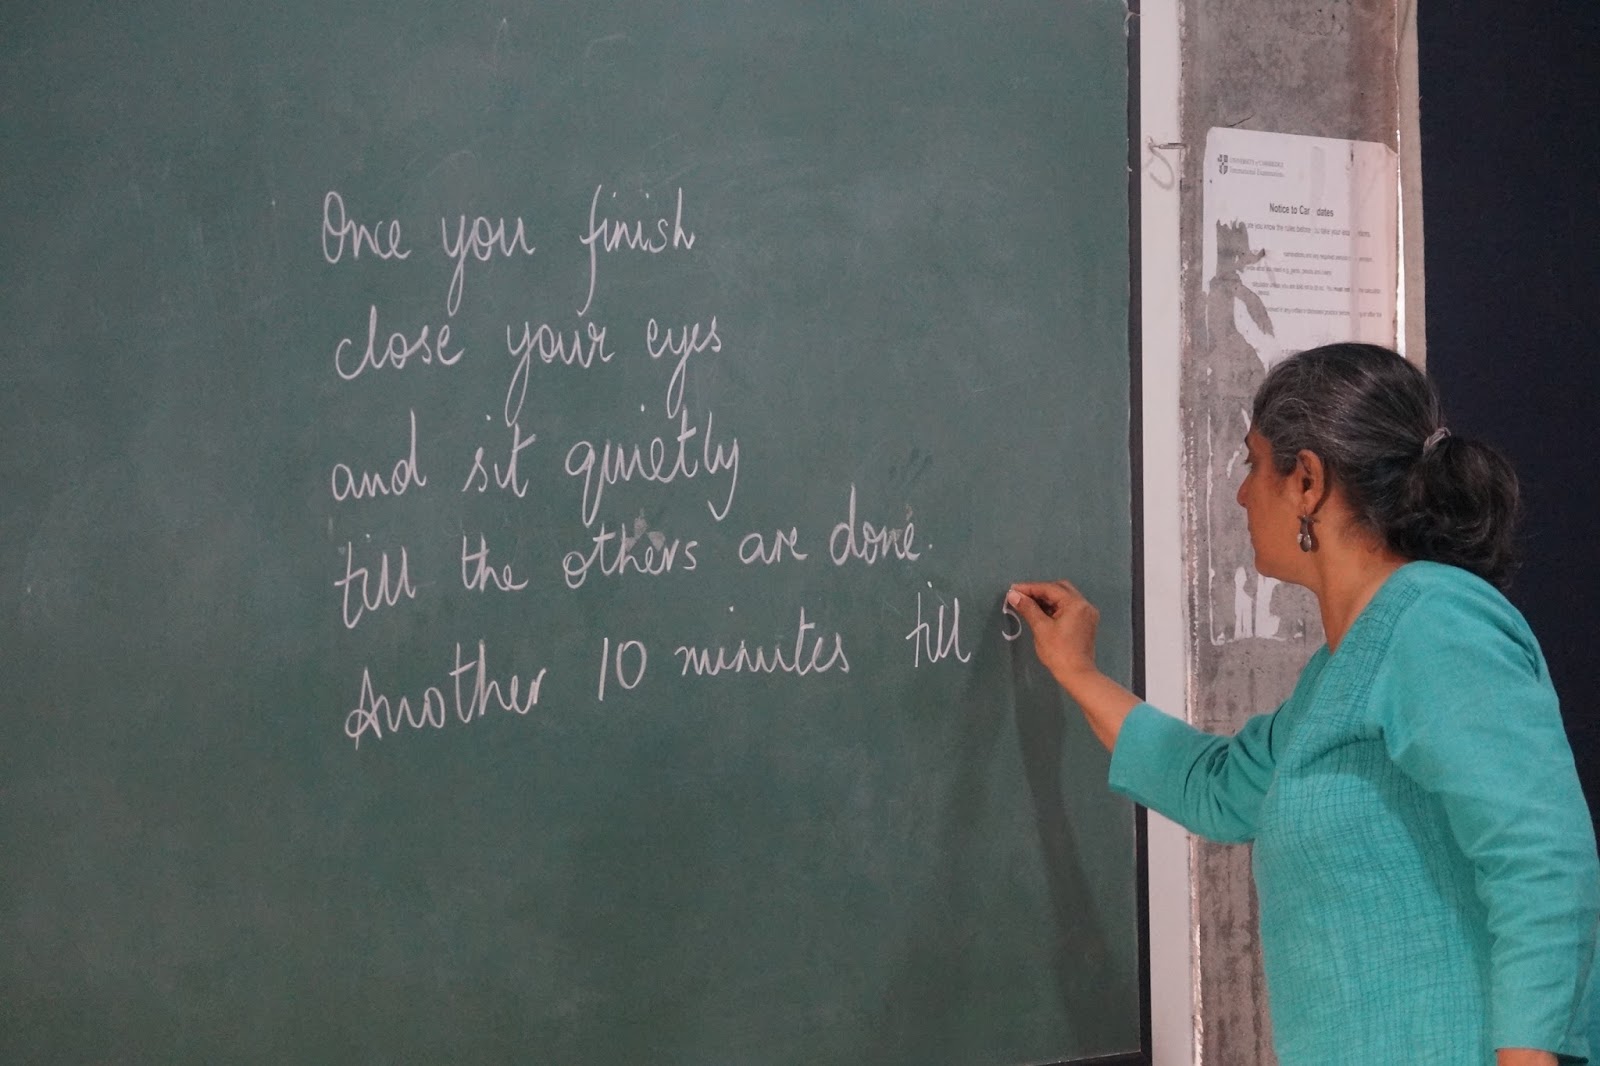 Once you finish
close your eyes
and sit quietly
till the others are done.
Another 10 minutes till 5
UNIVERSITY of CAMBRIDGE
International Examinations
Notice to Car dates